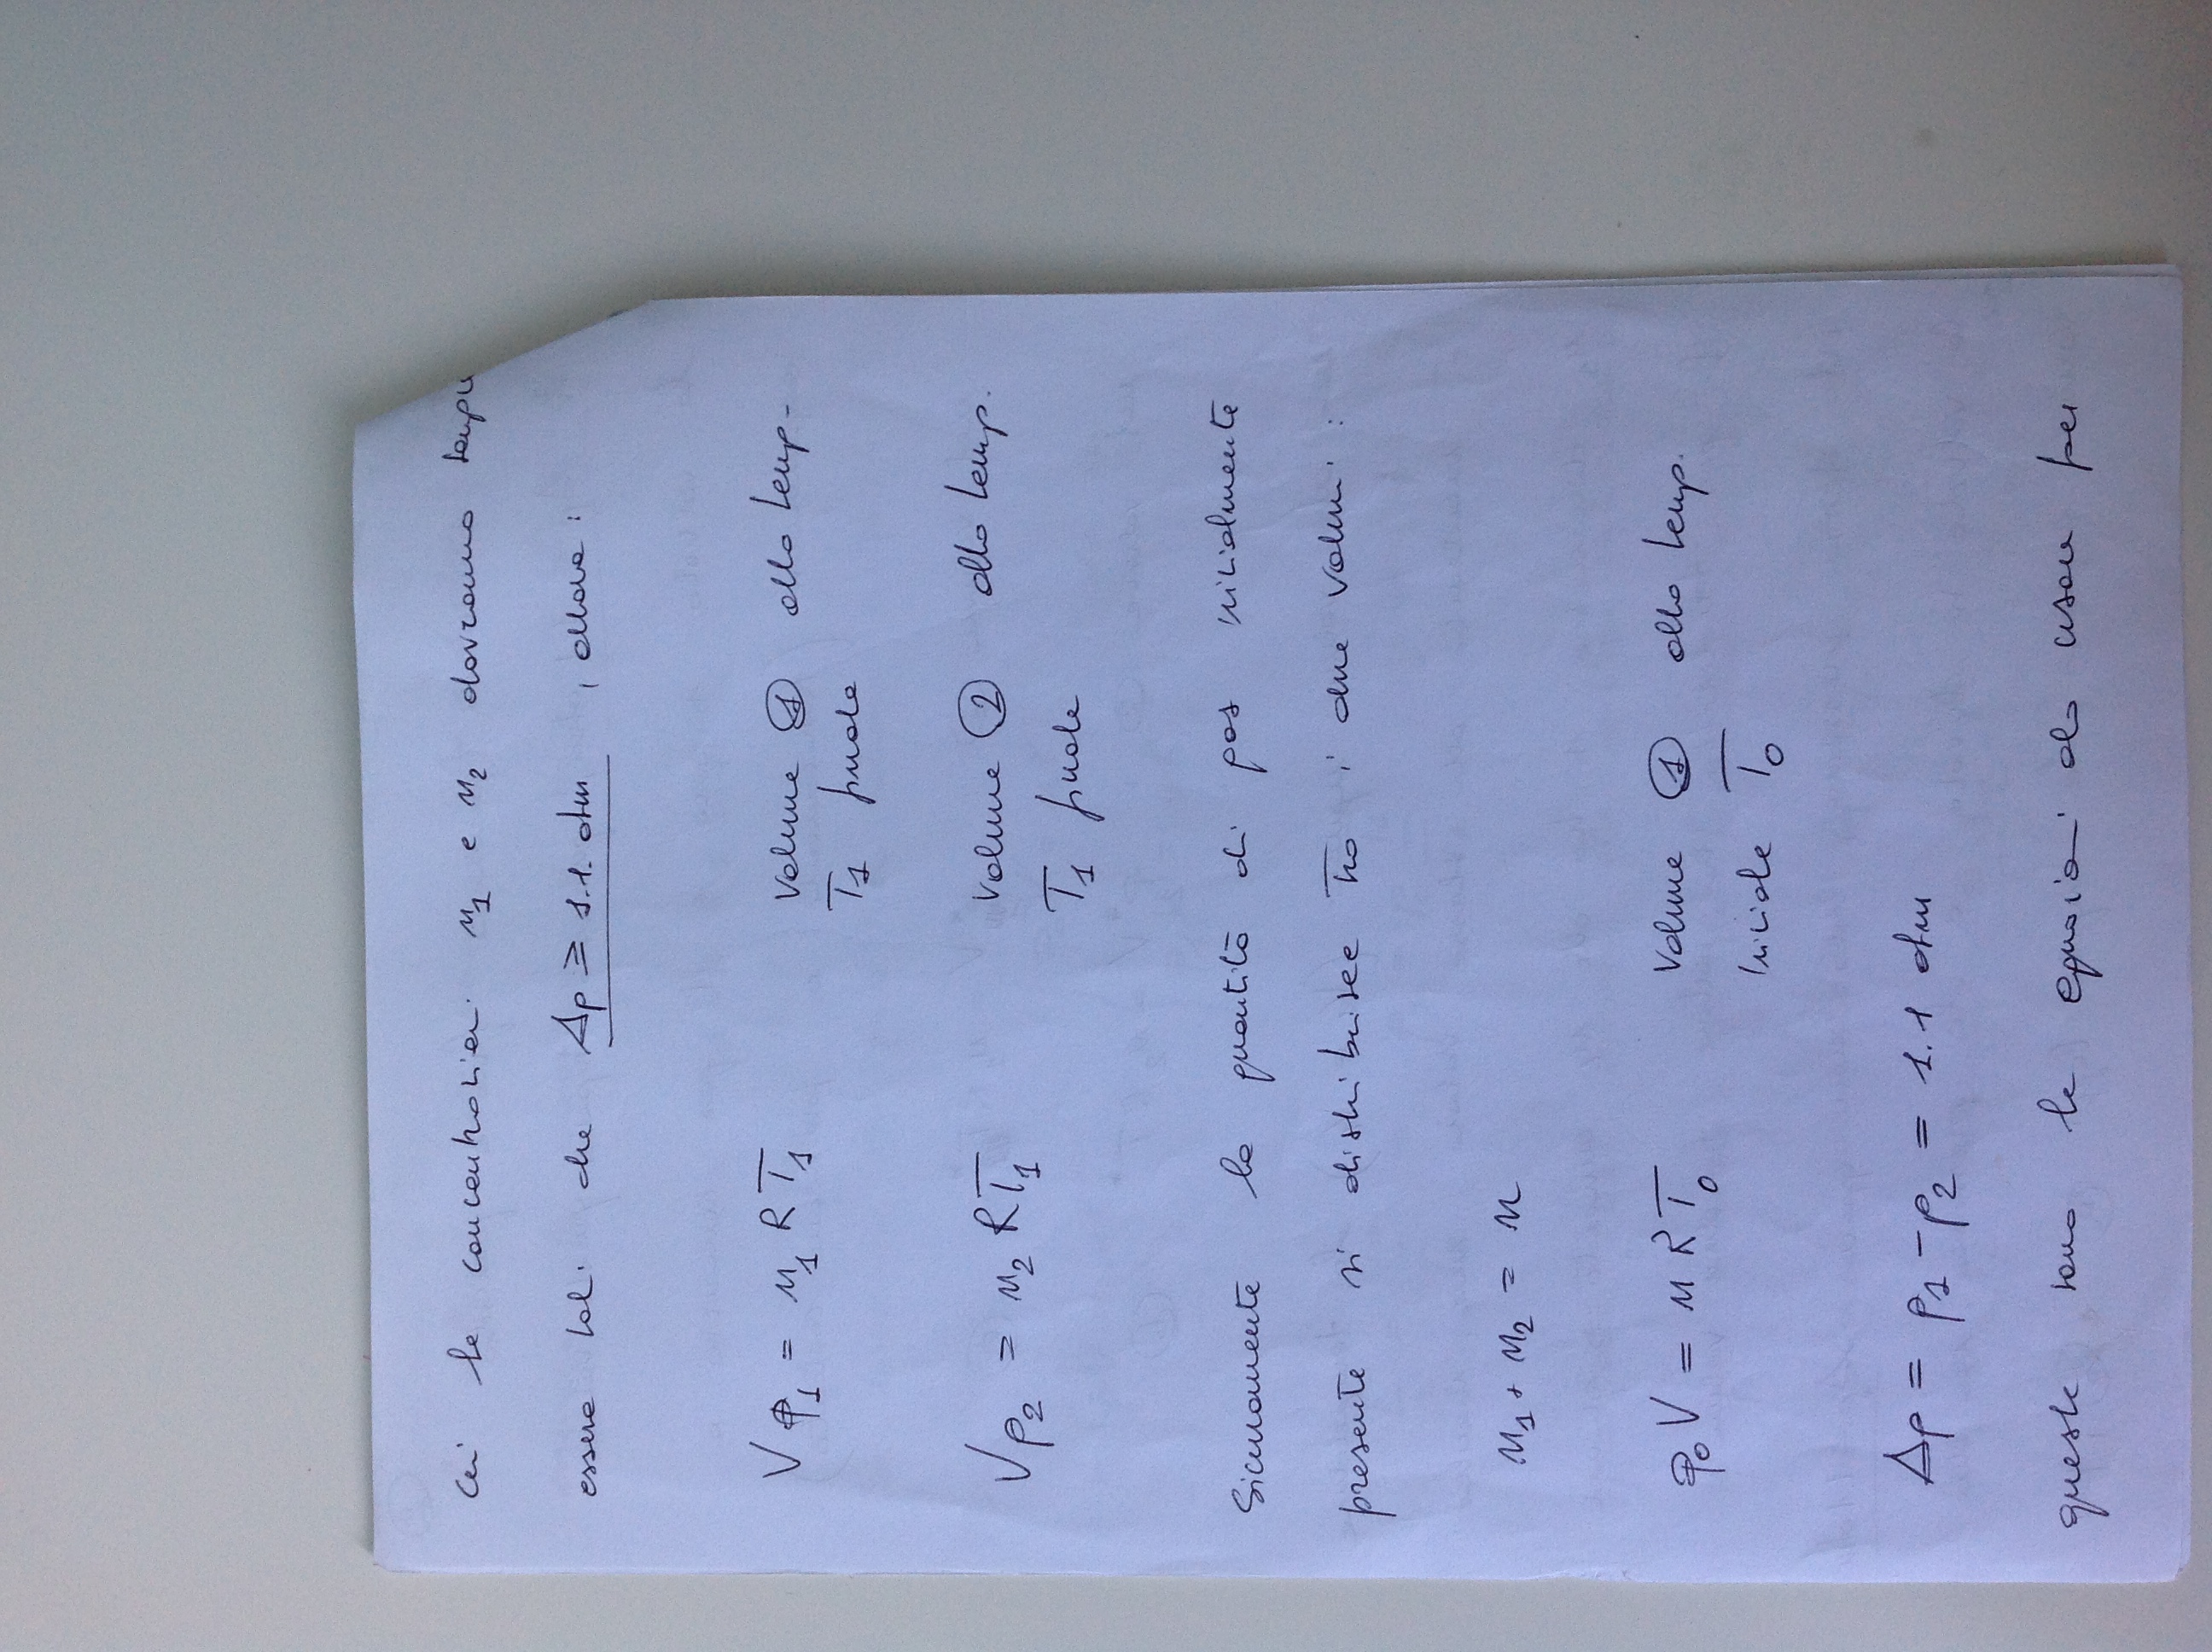 le concentrazioni n₁ e n₂ dovranno sempre
essere tali che Δp ≥ 1.1. atm , allora :
V p₁ = n₁ R T₁ Volume ① alla temp.
T₁ finale
V p₂ = n₂ R T₁ Volume ② alla temp.
T₁ finale
Sicuramente la quantità di gas inizialmente
presente si distribuisce tra i due volumi :
n₁ + n₂ = n
p₀ V = n R T₀ Volume ① alla temp.
iniziale T₀
Δp = p₁ - p₂ = 1.1 atm
queste sono le equazioni da usare per